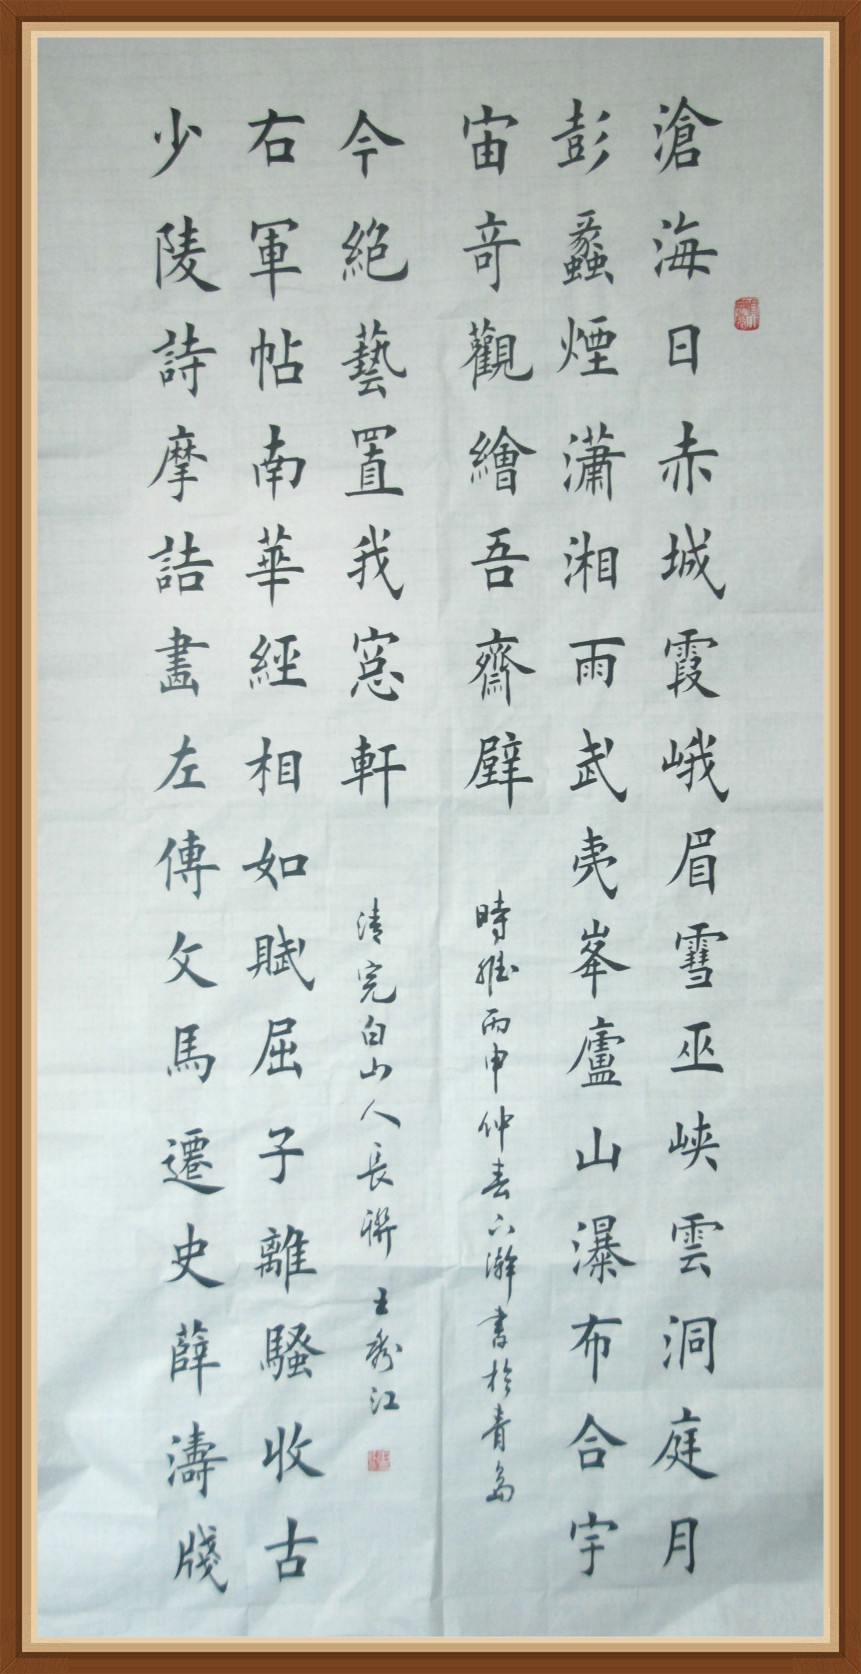 滄海日赤城霞峨眉雪巫峽雲洞庭月
彭蠡煙瀟湘雨武夷峯廬山瀑布合宇
宙竒觀繪吾齋壁
時維丙申仲春下澣書於青島
少陵詩摩詰畫左傳文馬遷史薛濤牋
右軍帖南華經相如賦屈子離騷收古
今絶藝置我窓軒
清完白山人長聯 王秀江